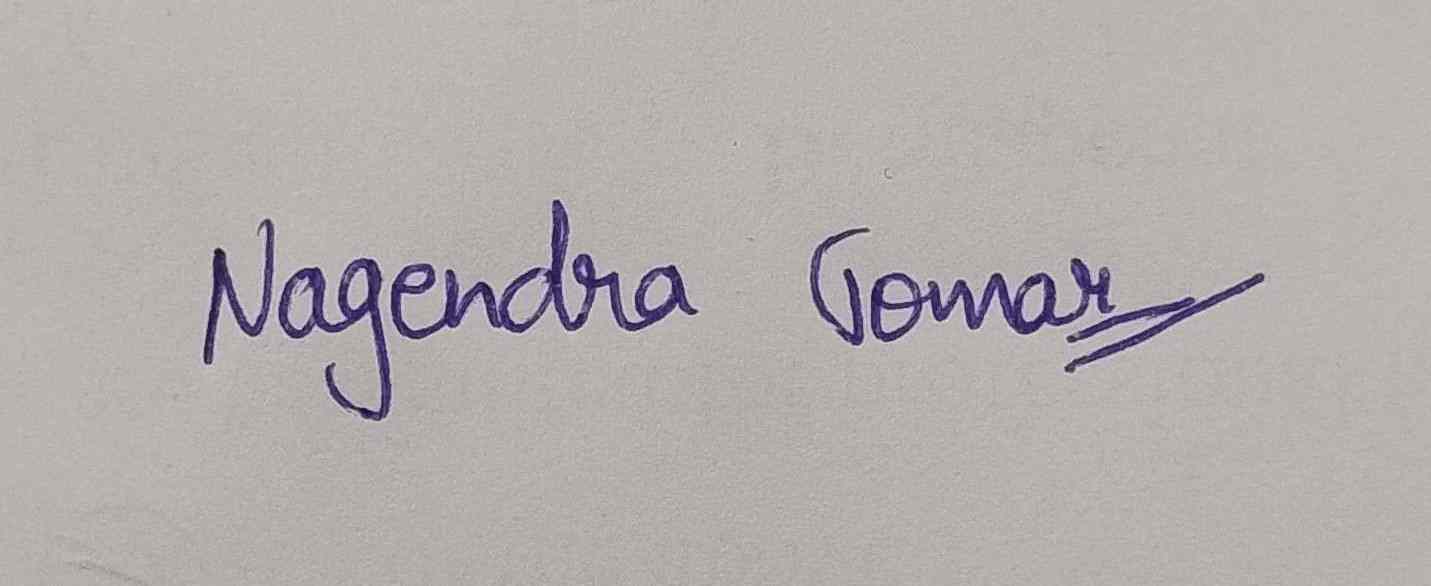 Nagendra Tomar